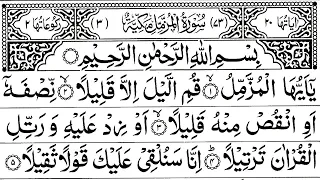 اٰیاتُهَا ۲۰ (۷۳) سُوْرَةُ الْمُزَّمِّلِ مَكِّيَّةٌ (۳) رُكُوْعَاتُهَا ۲
بِسْمِ اللهِ الرَّحْمٰنِ الرَّحِيْمِ
يٰۤاَيُّهَا الْمُزَّمِّلُ ۙ﴿۱﴾ قُمِ الَّيْلَ اِلَّا قَلِيْلًا ۙ﴿۲﴾ نِّصْفَهٗۤ
اَوِ انْقُصْ مِنْهُ قَلِيْلًا ۙ﴿۳﴾ اَوْ زِدْ عَلَيْهِ وَ رَتِّلِ
الْقُرْاٰنَ تَرْتِيْلًا ؕ﴿۴﴾ اِنَّا سَنُلْقِيْ عَلَيْكَ قَوْلًا ثَقِيْلًا ﴿۵﴾